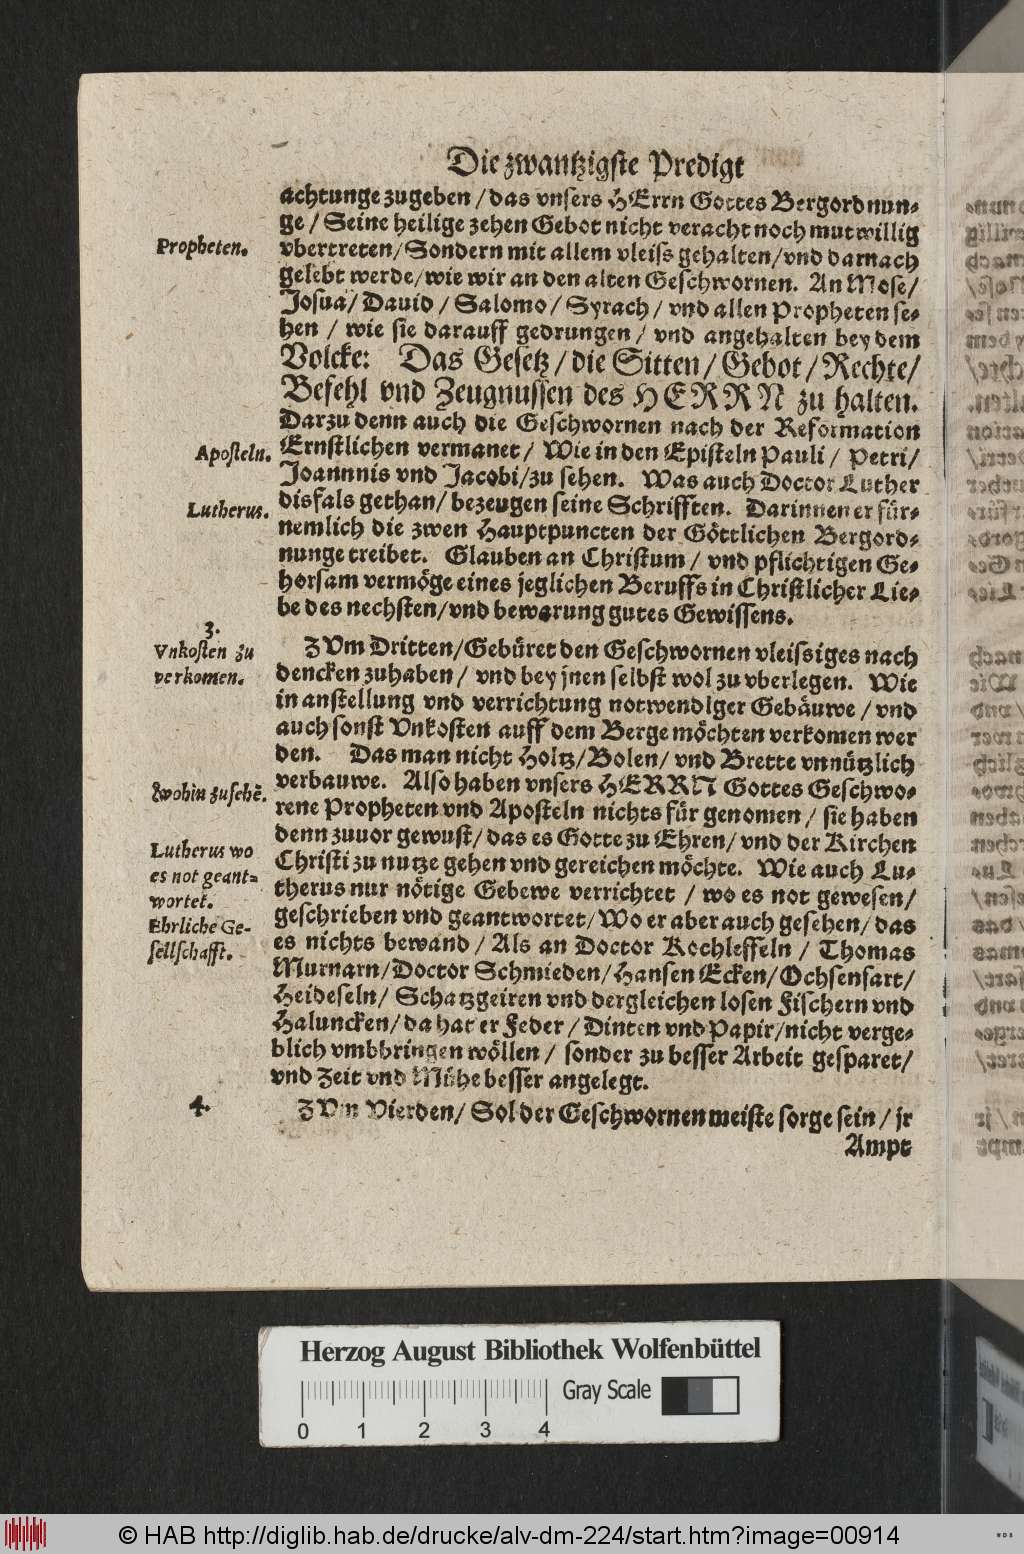 Die zwantzigste Predigt
achtunge zugeben / das vnsers HErrn Gottes Bergordnun-
ge / Seine heilige zehen Gebot nicht veracht noch mutwillig
Propheten.
vbertreten / Sondern mit allem vleiss gehalten / vnd darnach
gelebt werde / wie wir an den alten Geschwornen. An Mose /
Josua / Dauid / Salomo / Syrach / vnd allen Propheten se-
hen / wie sie darauff gedrungen / vnd angehalten bey dem
Volcke: Das Gesetz / die Sitten / Gebot / Rechte /
Befehl vnd Zeugnussen des HERRN zu halten.
Darzu denn auch die Geschwornen nach der Reformation
Aposteln.
Ernstlichen vermanet / Wie in den Episteln Pauli / Petri /
Joannnis vnd Jacobi / zu sehen. Was auch Doctor Luther
Lutherus.
disfals gethan / bezeugen seine Schrifften. Darinnen er für-
nemlich die zwen Hauptpuncten der Göttlichen Bergord-
nunge treibet. Glauben an Christum / vnd pflichtigen Ge-
horsam vermöge eines jeglichen Beruffs in Christlicher Lie-
be des nechsten / vnd bewarung gutes Gewissens.
3.
Vnkosten zu
verkomen.
ZVm Dritten / Gebüret den Geschwornen vleissiges nach
dencken zuhaben / vnd bey jnen selbst wol zu vberlegen. Wie
in anstellung vnd verrichtung notwendiger Gebäuwe / vnd
auch sonst Vnkosten auff dem Berge möchten verkomen wer
den. Das man nicht Holtz / Bolen / vnd Brette vnnützlich
wohin zusehē.
verbauwe. Also haben vnsers HERRN Gottes Geschwo-
rene Propheten vnd Aposteln nichts für genomen / sie haben
denn zuuor gewust / das es Gotte zu Ehren / vnd der Kirchen
Lutherus wo
es not geant=
wortet.
Christi zu nutze gehen vnd gereichen möchte. Wie auch Lu-
therus nur nötige Gebewe verrichtet / wo es not gewesen /
geschrieben vnd geantwortet / Wo er aber auch gesehen / das
Ehrliche Ge-
sellschafft.
es nichts bewand / Als an Doctor Kochleffeln / Thomas
Murnarn / Doctor Schmieden / Hansen Ecken / Ochsenfart /
Heideseln / Schatzgeiren vnd dergleichen losen Fischern vnd
Haluncken / da hat er Feder / Dinten vnd Papir / nicht verge-
blich vmbbringen wöllen / sonder zu besser Arbeit gesparet /
vnd Zeit vnd Mühe besser angelegt.
4.
ZVm Vierden / Sol der Geschwornen meiste sorge sein / jr
Ampt
Herzog August Bibliothek Wolfenbüttel
Gray Scale
0 1 2 3 4
© HAB http://diglib.hab.de/drucke/alv-dm-224/start.htm?image=00914